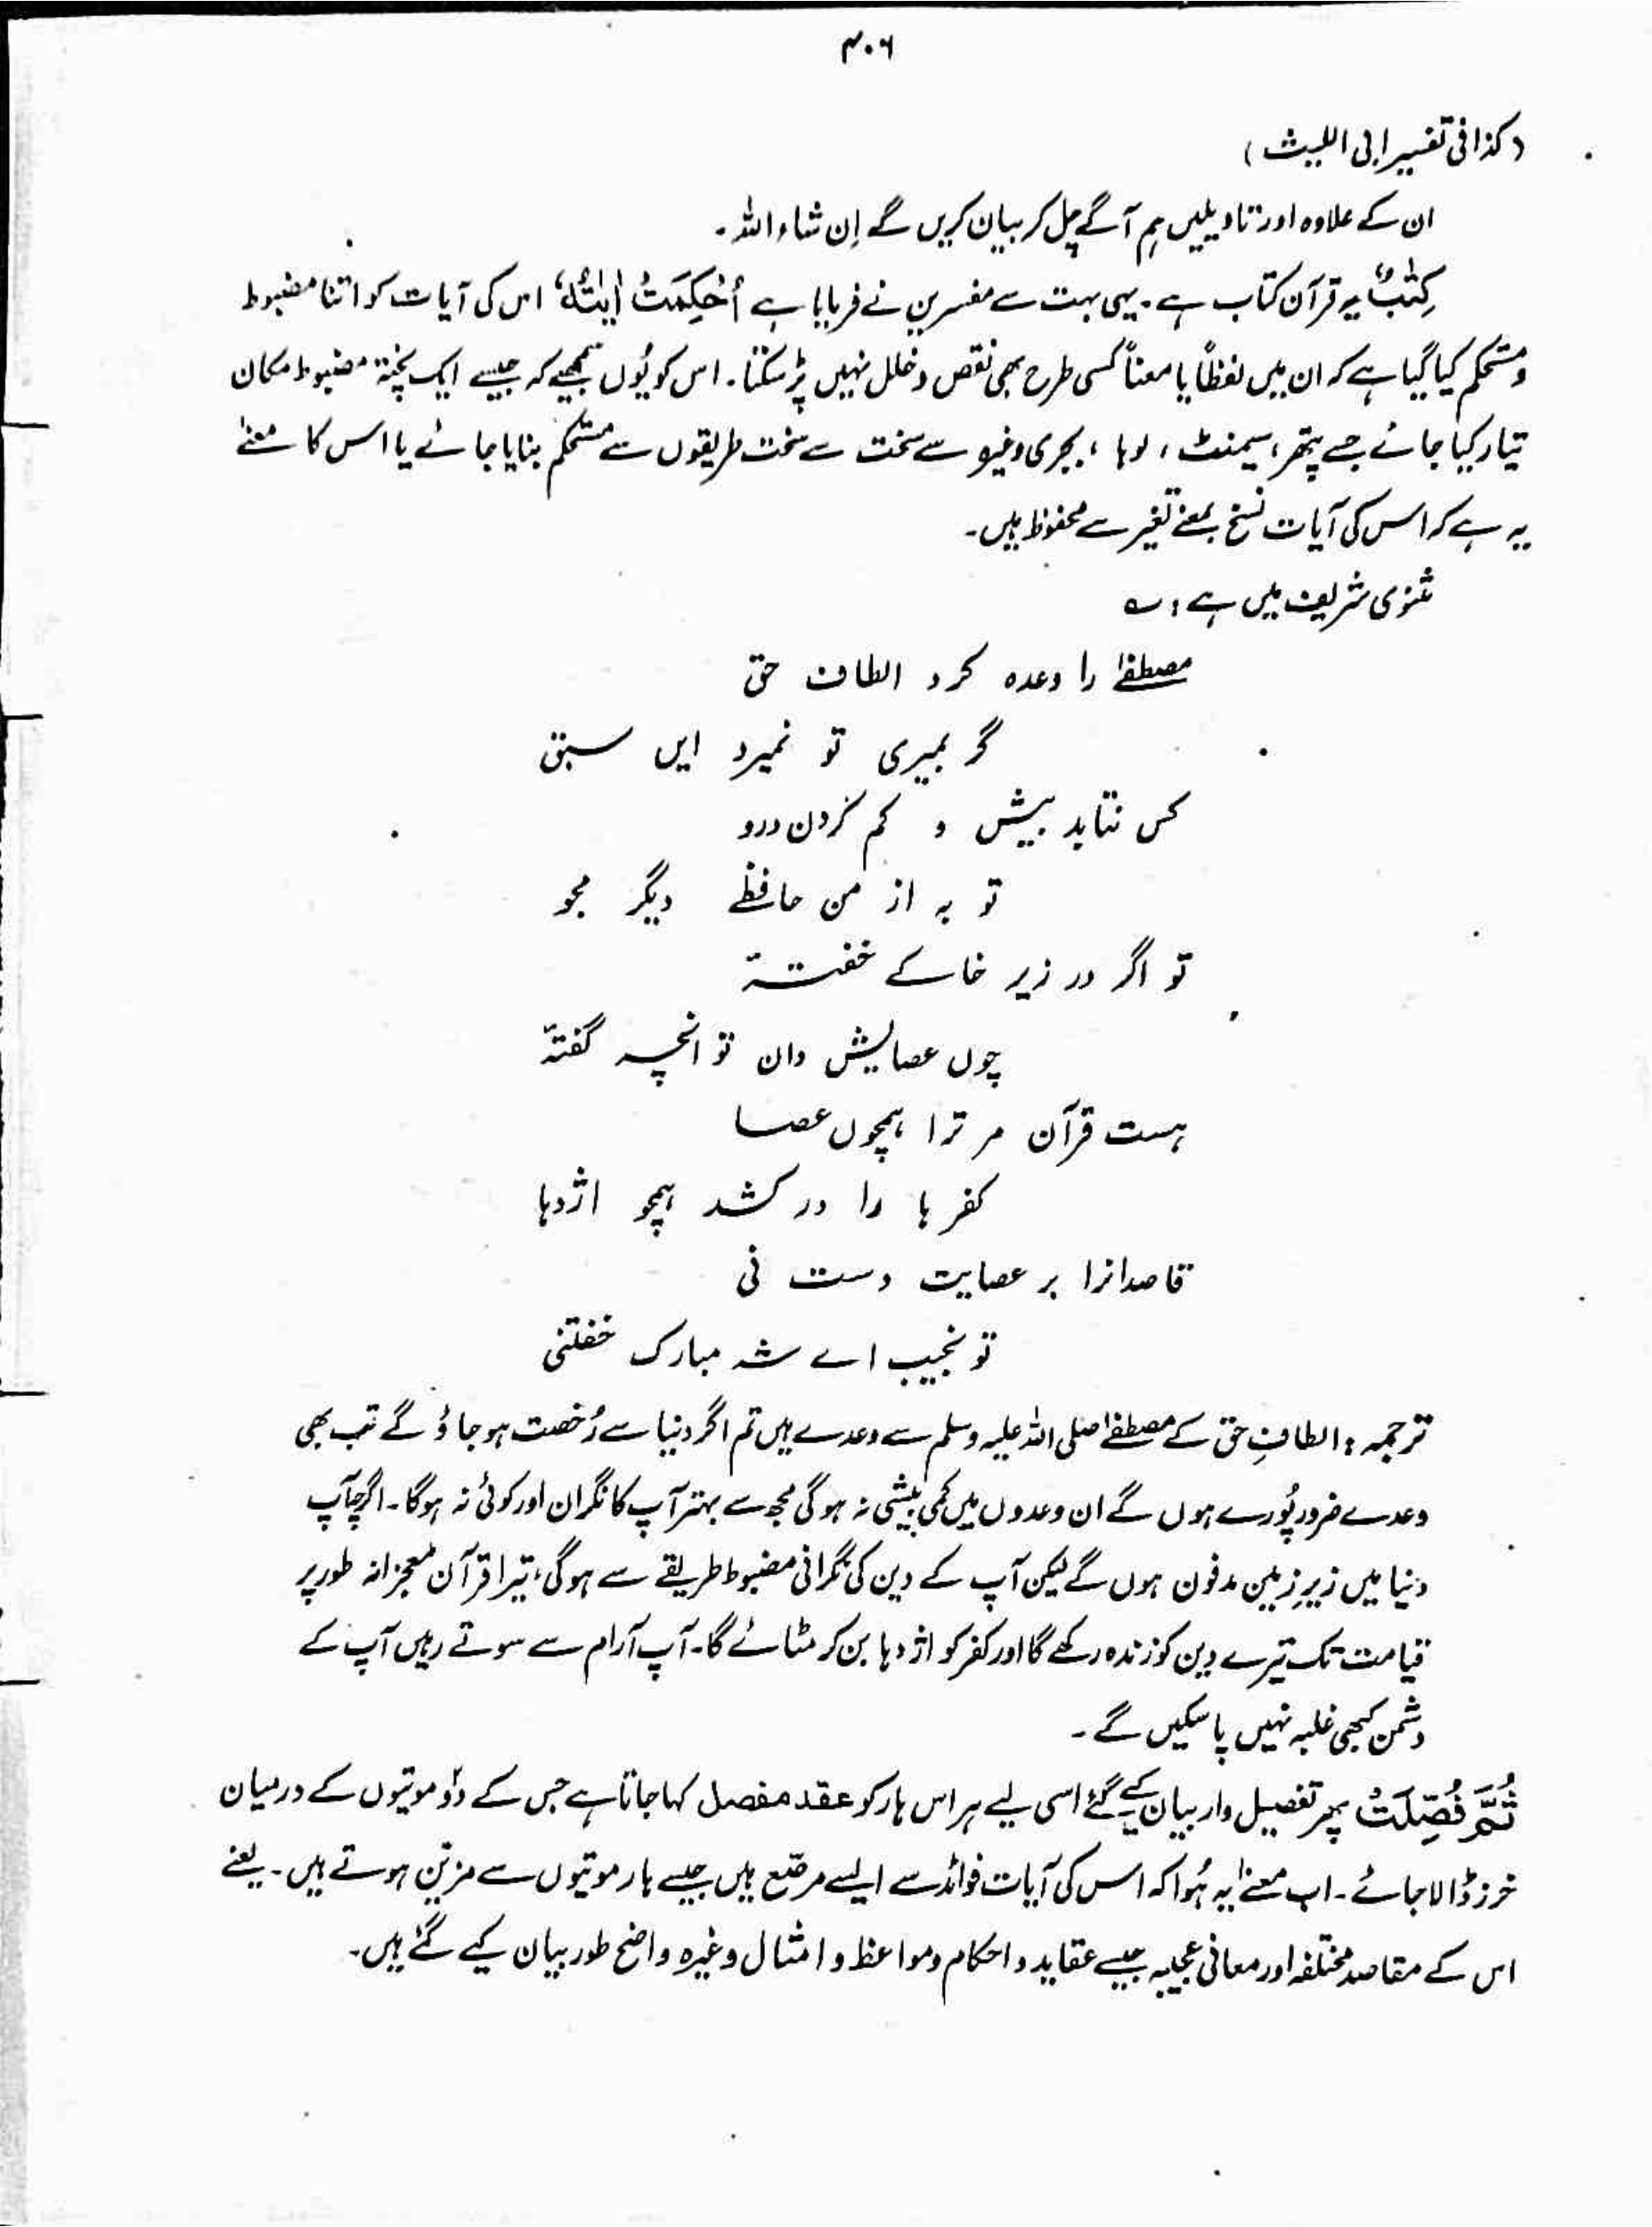 ۳۰۶
(کذا فی تفسیر ابی اللیث)
ان کے علاوہ اور تاویلیں ہم آگے چل کر بیان کریں گے اِن شاء اللہ۔
کِتٰبٌ یہ قرآن کتاب ہے۔ یہی بہت سے مفسرین نے فرمایا ہے اُحْکِمَتْ اٰیٰتُہٗ اس کی آیات کو اتنا مضبوط
و مستحکم کیا گیا ہے کہ ان میں لفظاً یا معناً کسی طرح بھی نقص و خلل نہیں پڑ سکتا۔ اس کو یُوں سمجھیے کہ جیسے ایک پختہ مضبوط مکان
تیار کیا جائے جسے پتھر، سیمنٹ، لوہا، بجری وغیرہ سے سخت سے سخت طریقوں سے مستحکم بنایا جائے یا اس کا معنےٰ
یہ ہے کہ اس کی آیات نسخ بمعنے تغیر سے محفوظ ہیں۔
مثنوی شریف میں ہے : ؎
مصطفےٰ را وعدہ کرد الطاف حق
گر بمیری تو نمیرد ایں سبق
کس نتابد بیش و کم کردن درو
تو بہ از من حافظے دیگر مجو
تو اگر در زیر خاکے خفتۂ
چوں عصایش دان تو انچہ گفتۂ
ہست قرآن مر ترا ہمچوں عصا
کفر ہا را در کشد ہمچو اژدہا
قاصدانرا بر عصایت دست نی
تو نجیب اے شہ مبارک خفتنی
ترجمہ : الطافِ حق کے مصطفےٰ صلی اللہ علیہ وسلم سے وعدے ہیں تم اگر دنیا سے رُخصت ہو جاؤ گے تب بھی
وعدے ضرور پُورے ہوں گے ان وعدوں میں کمی بیشی نہ ہوگی مجھ سے بہتر آپ کا نگران اور کوئی نہ ہوگا۔ اگرچہ آپ
دنیا میں زیرِ زمین مدفون ہوں گے لیکن آپ کے دین کی نگرانی مضبوط طریقے سے ہوگی، تیرا قرآن معجزانہ طور پر
قیامت تک تیرے دین کو زندہ رکھے گا اور کفر کو اژدہا بن کر مٹائے گا۔ آپ آرام سے سوتے رہیں آپ کے
دشمن کبھی غلبہ نہیں پا سکیں گے۔
ثُمَّ فُصِّلَتْ پھر تفصیل وار بیان کیے گئے اسی لیے ہر اس ہار کو عقد مفصل کہا جاتا ہے جس کے دو موتیوں کے درمیان
خرز ڈالا جائے۔ اب معنےٰ یہ ہُوا کہ اس کی آیات فوائد سے ایسے مرصّع ہیں جیسے ہار موتیوں سے مزیّن ہوتے ہیں۔ یعنے
اس کے مقاصد مختلفہ اور معانی عجیبہ جیسے عقاید و احکام و مواعظ و امثال وغیرہ واضح طور بیان کیے گئے ہیں۔